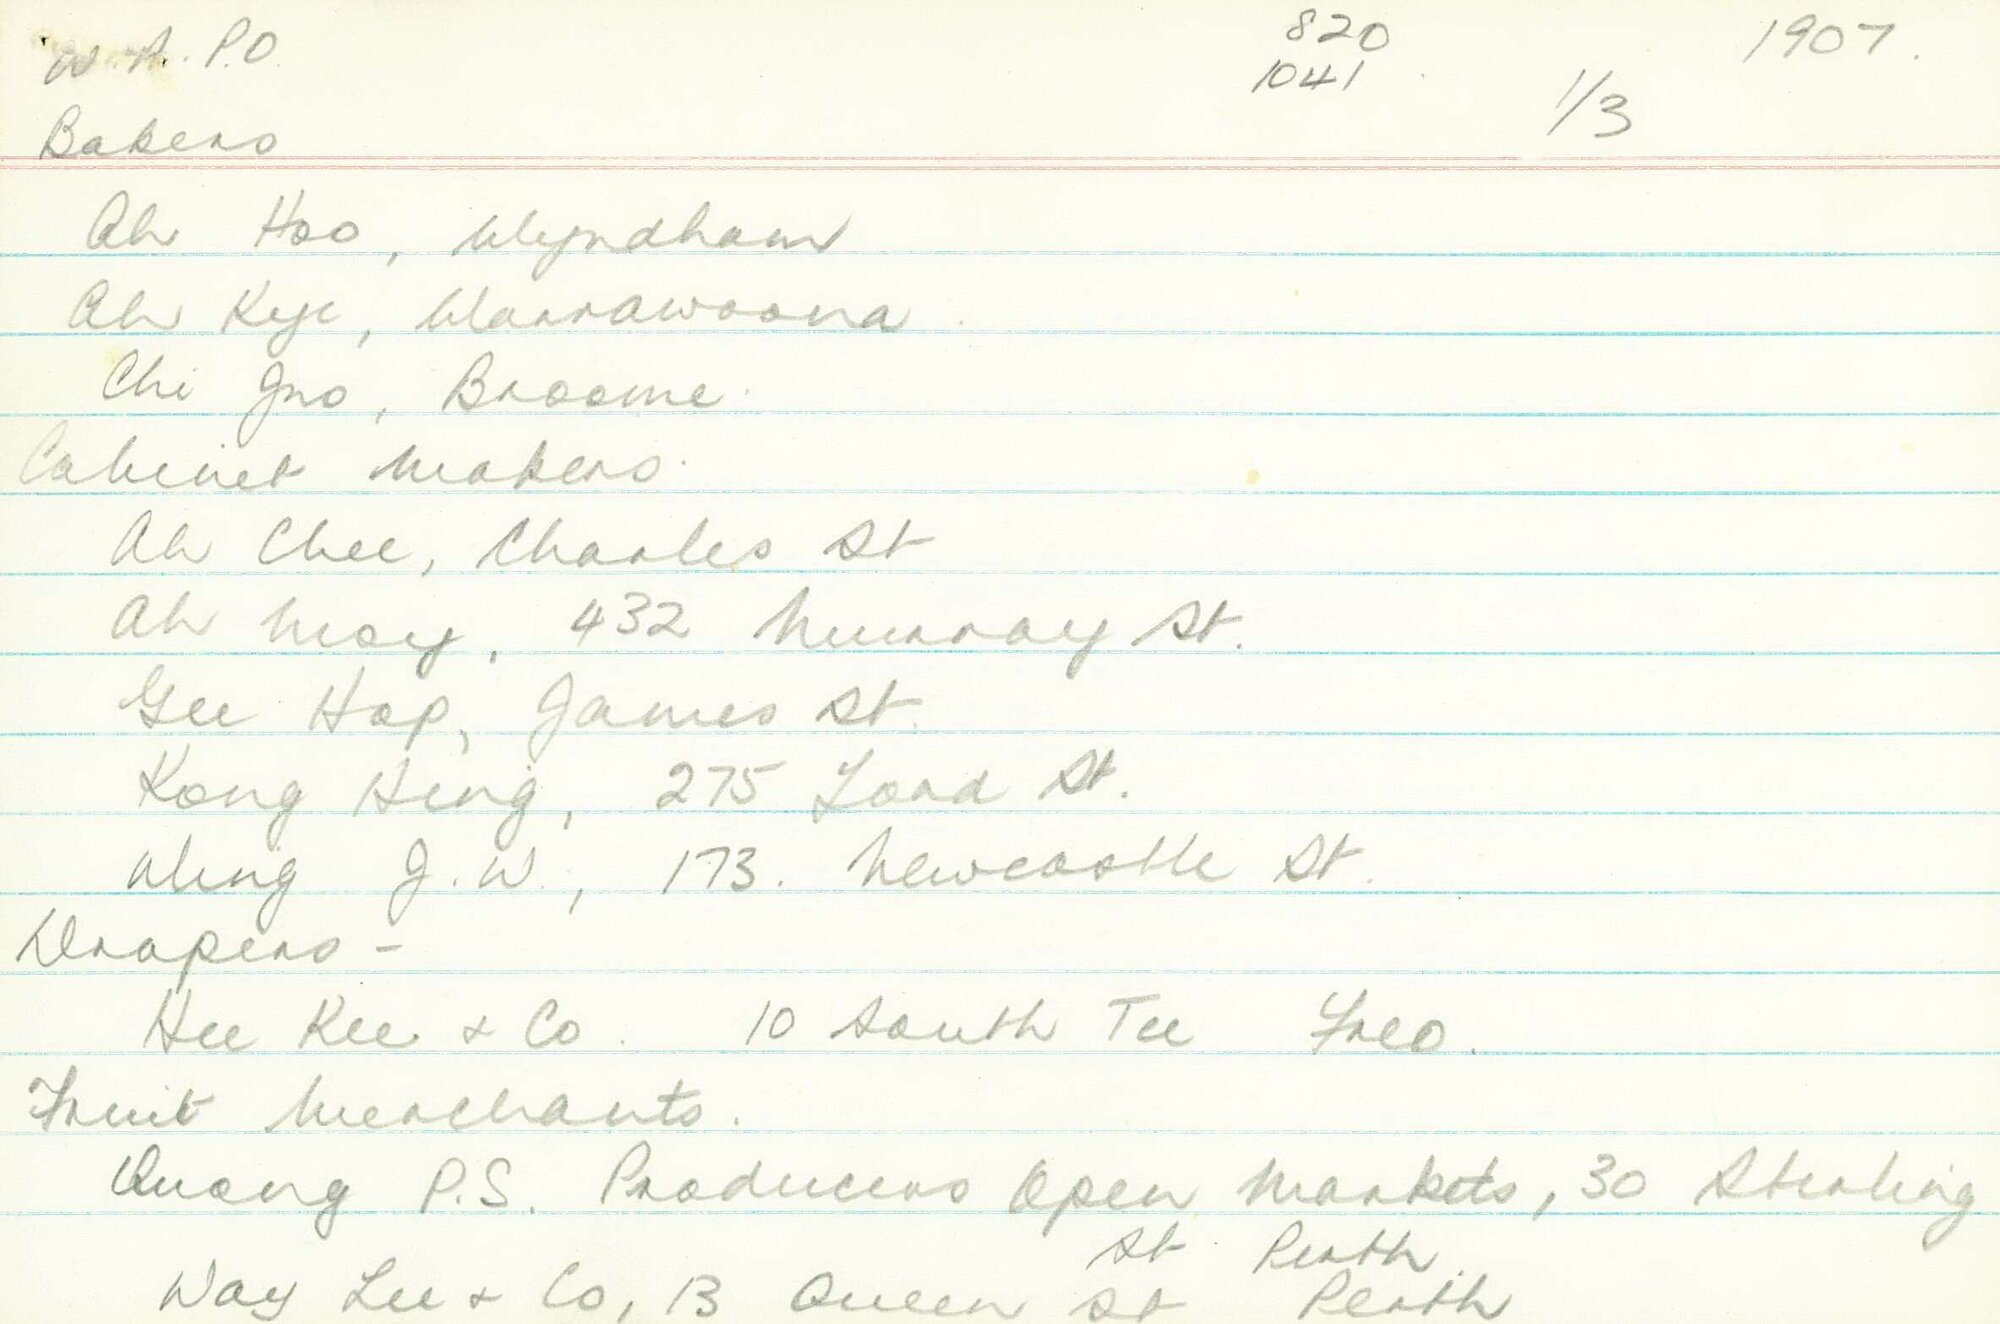 W.A. P.O 820 1907.
1041 1/3
Bakers
Ah Hoo, Wyndham
Ah Kye, Warrawoona.
Chi Jno, Broome.
Cabinet Makers.
Ah Chee, Charles St
Ah Moy, 432 Murray St.
Gee Hop, James St.
Kong Hing, 275 Lord St.
Wing J.W., 173. Newcastle St.
Drapers -
Hee Kee & Co. 10 South Tce Freo.
Fruit Merchants.
Quong P.S. Producers Open Markets, 30 Stirling
St Perth.
Way Lee & Co, 13 Queen St Perth